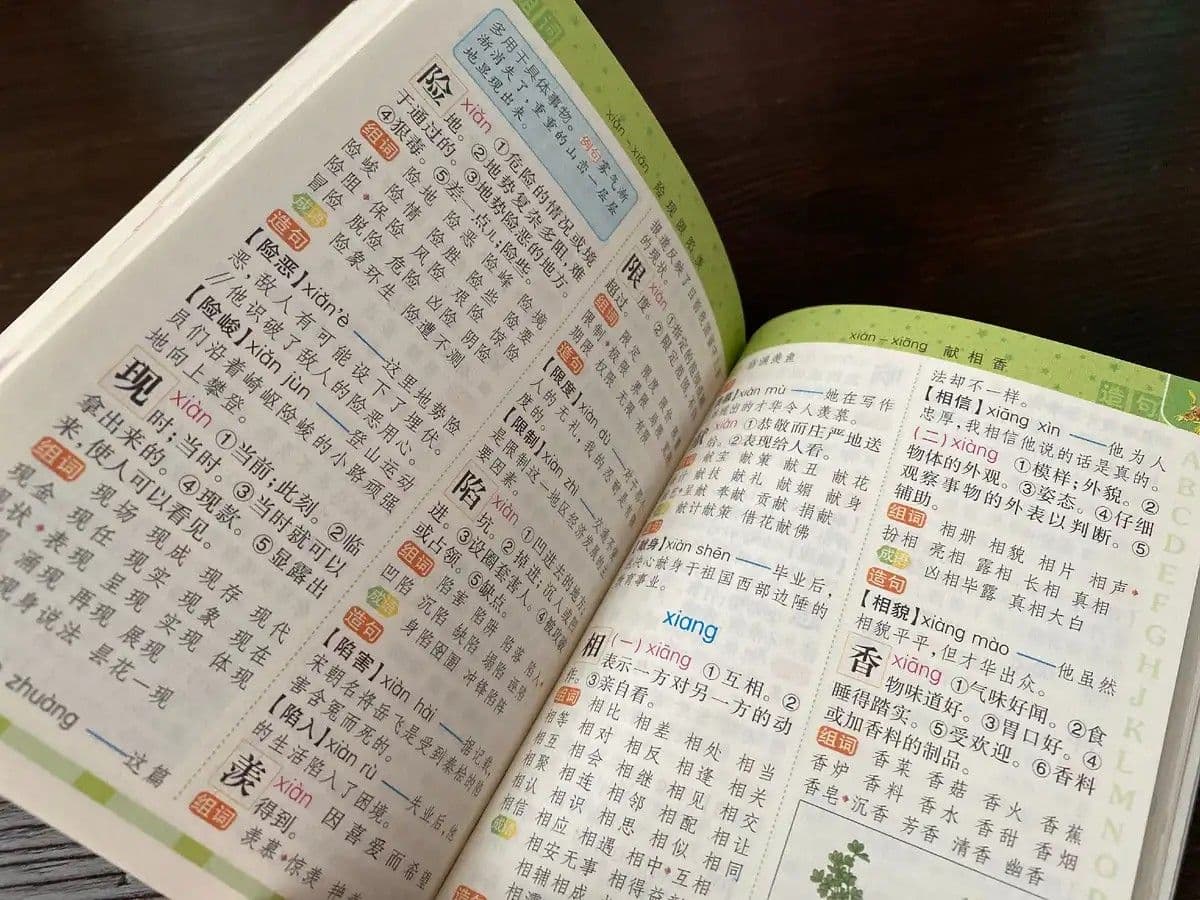 组词
多用于具体事物。例句 雾气渐
渐消失了，重重的山峦一层层
地显现出来。
险 xiǎn ①危险的情况或境
地。②地势复杂多阻，难
于通过的。③地势险恶的地方。
④狠毒。⑤差一点儿；险些。
组词
险峻 险地 险恶 险峰 险境
险阻◆保险 风险 艰险 惊险
冒险 脱险 危险 凶险 阴险
成语 险象环生 险遭不测
造句
【险恶】xiǎn'è ——这里地势险
恶，敌人有可能设下了埋伏。
//他识破了敌人的险恶用心。
【险峻】xiǎn jùn ——登山运动
员们沿着崎岖险峻的小路顽强
地向上攀登。
现 xiàn ①当前；此刻。②临
时；当时。③当时就可以
拿出来的。④现款。⑤显露出
来，使人可以看见。
组词
现场 现成 现存 现代
现金 现任 现实 现象 现在
现状◆表现 呈现 实现 体现
涌现 再现 展现
现身说法 昙花一现
zhuàng ——这篇
xiǎn－xiàn 险现限陷羡
的现状。
限 xiàn ①指定的范围；
度。②限定范围，
超过。
组词
限制◆极限 界限 局限 年限
期限 权限 无限 有限
造句
【限度】xiàn dù
【限制】xiàn zhì
是限制这一地区经济发展的主
要因素。
陷 xiàn ①凹进去的地方；
坑。②掉进；沉入或凹
进。③设圈套害人。④被攻破
或占领。⑤缺点。
组词 陷害 陷阱 陷落 陷入◆
凹陷 沉陷 缺陷 塌陷 诬陷
成语 身陷囹圄 冲锋陷阵
造句
【陷害】xiàn hài ——据记载，
宋朝名将岳飞是受到秦桧的陷
害含冤而死的。
【陷入】xiàn rù ——失业后，他
的生活陷入了困境。
羡 xiàn 因喜爱而希望
得到。
组词 羡慕◆惊羡
xiàn－xiāng 献相香
造句
xiàn mù ——他在写作
现出的才华令人羡慕。
xiàn ①恭敬而庄严地送
给。②表现给人看。
献宝 献策 献丑 献花
献技 献礼 献媚 献身
奉献 贡献 捐献
献计献策 借花献佛
xiàn shēn ——毕业后，
献身于祖国西部边陲的
xiang
相 (一) xiāng ①互相。②
表示一方对另一方的动
作。③亲自看。
组词 相比 相差 相处 相当
相等 相对 相反 相逢 相关
相互 相会 相继 相见 相交
相聚 相连 相邻 相配 相让
相认 相识 相思 相似 相同
相信 相应 相遇 相中◆互相
成语 相安无事 相得益彰
相辅相成
法却不一样。
【相信】xiāng xìn ——他为人
忠厚，我相信他说的话是真的。
(二) xiàng ①模样；外貌。②
物体的外观。③姿态。④仔细
观察事物的外表以判断。⑤
辅助。
组词 相册 相貌 相片 相声◆
扮相 亮相 露相 长相 真相
成语 凶相毕露 真相大白
造句
【相貌】xiàng mào ——他虽然
相貌平平，但才华出众。
香 xiāng ①气味好闻。②食
物味道好。③胃口好。④
睡得踏实。⑤受欢迎。⑥香料
或加香料的制品。
组词 香菜 香菇 香火 香蕉
香炉 香料 香水 香甜 香烟
香皂◆沉香 芳香 清香 幽香
A
B
C
D
E
F
G
H
J
K
L
M
N
O
P